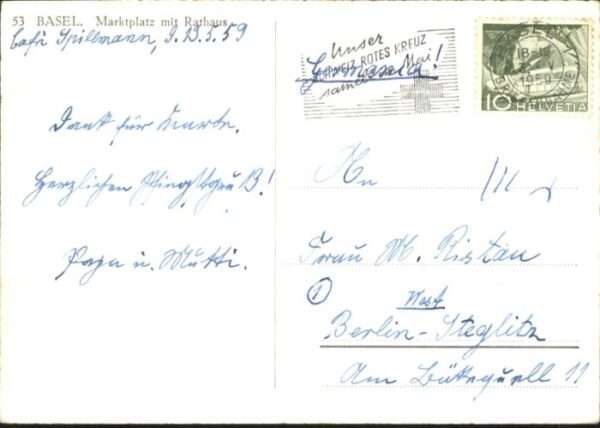 53 BASEL. Marktplatz mit Rathaus
Café Spillmann, 13.5.59
Dank für Karte.
Herzlichen Pfingstgruß!
Papa u. Mutti.
Unser
SCHWEIZ. ROTES KREUZ
sammelt im Mai
Germania!
18-
1959
10 HELVETIA
An
Frau M. Ristau
West
Berlin-Steglitz
Am Bäkequell 11